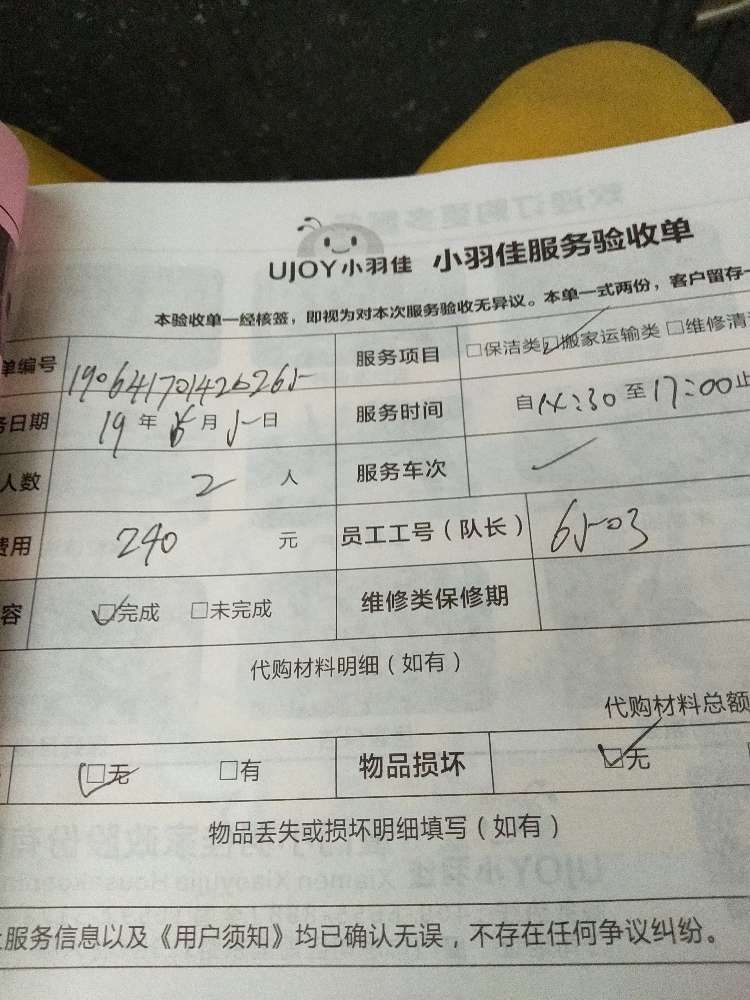 UJOY小羽佳 小羽佳服务验收单
本验收单一经核签，即视为对本次服务验收无异议。本单一式两份，客户留存一
单编号 190641701426265 服务项目 □保洁类□搬家运输类□维修清
务日期 19年 月5日 服务时间 自14:30至17:00止
人数 2人 服务车次
费用 240元 员工工号（队长） 6503
容 □完成 □未完成 维修类保修期
代购材料明细（如有）
代购材料总额
□无 □有 物品损坏 □无
物品丢失或损坏明细填写（如有）
服务信息以及《用户须知》均已确认无误，不存在任何争议纠纷。